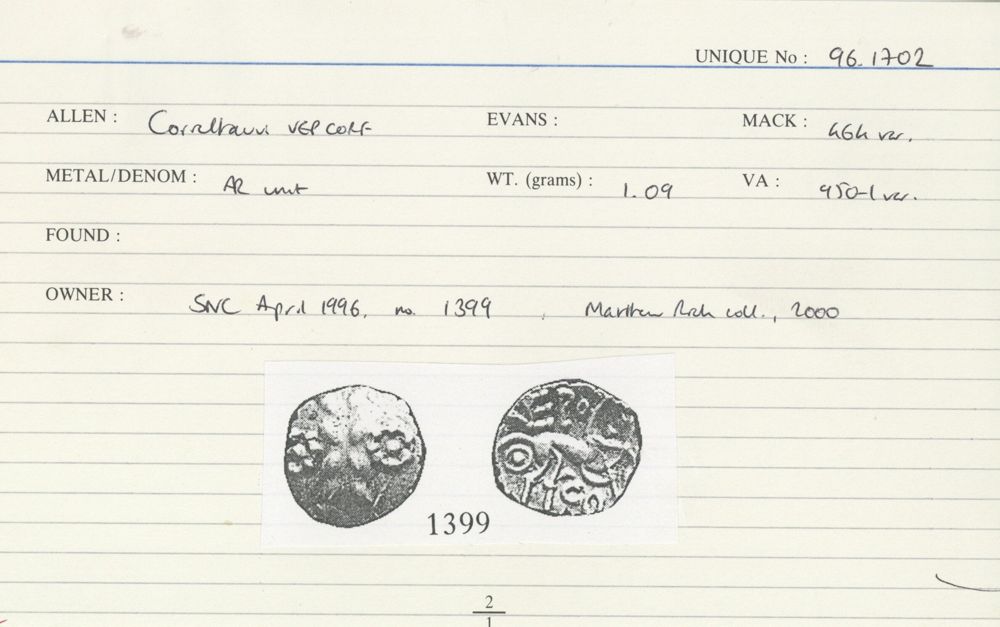 UNIQUE No : 96.1702
ALLEN : Corieltauvi VEP CORF EVANS : MACK : 464 var.
METAL/DENOM : AR unit WT. (grams) : 1.09 VA : 950-1 var.
FOUND :
OWNER : SNC April 1996, no. 1399 , Matthew Rich coll., 2000
1399
2
1